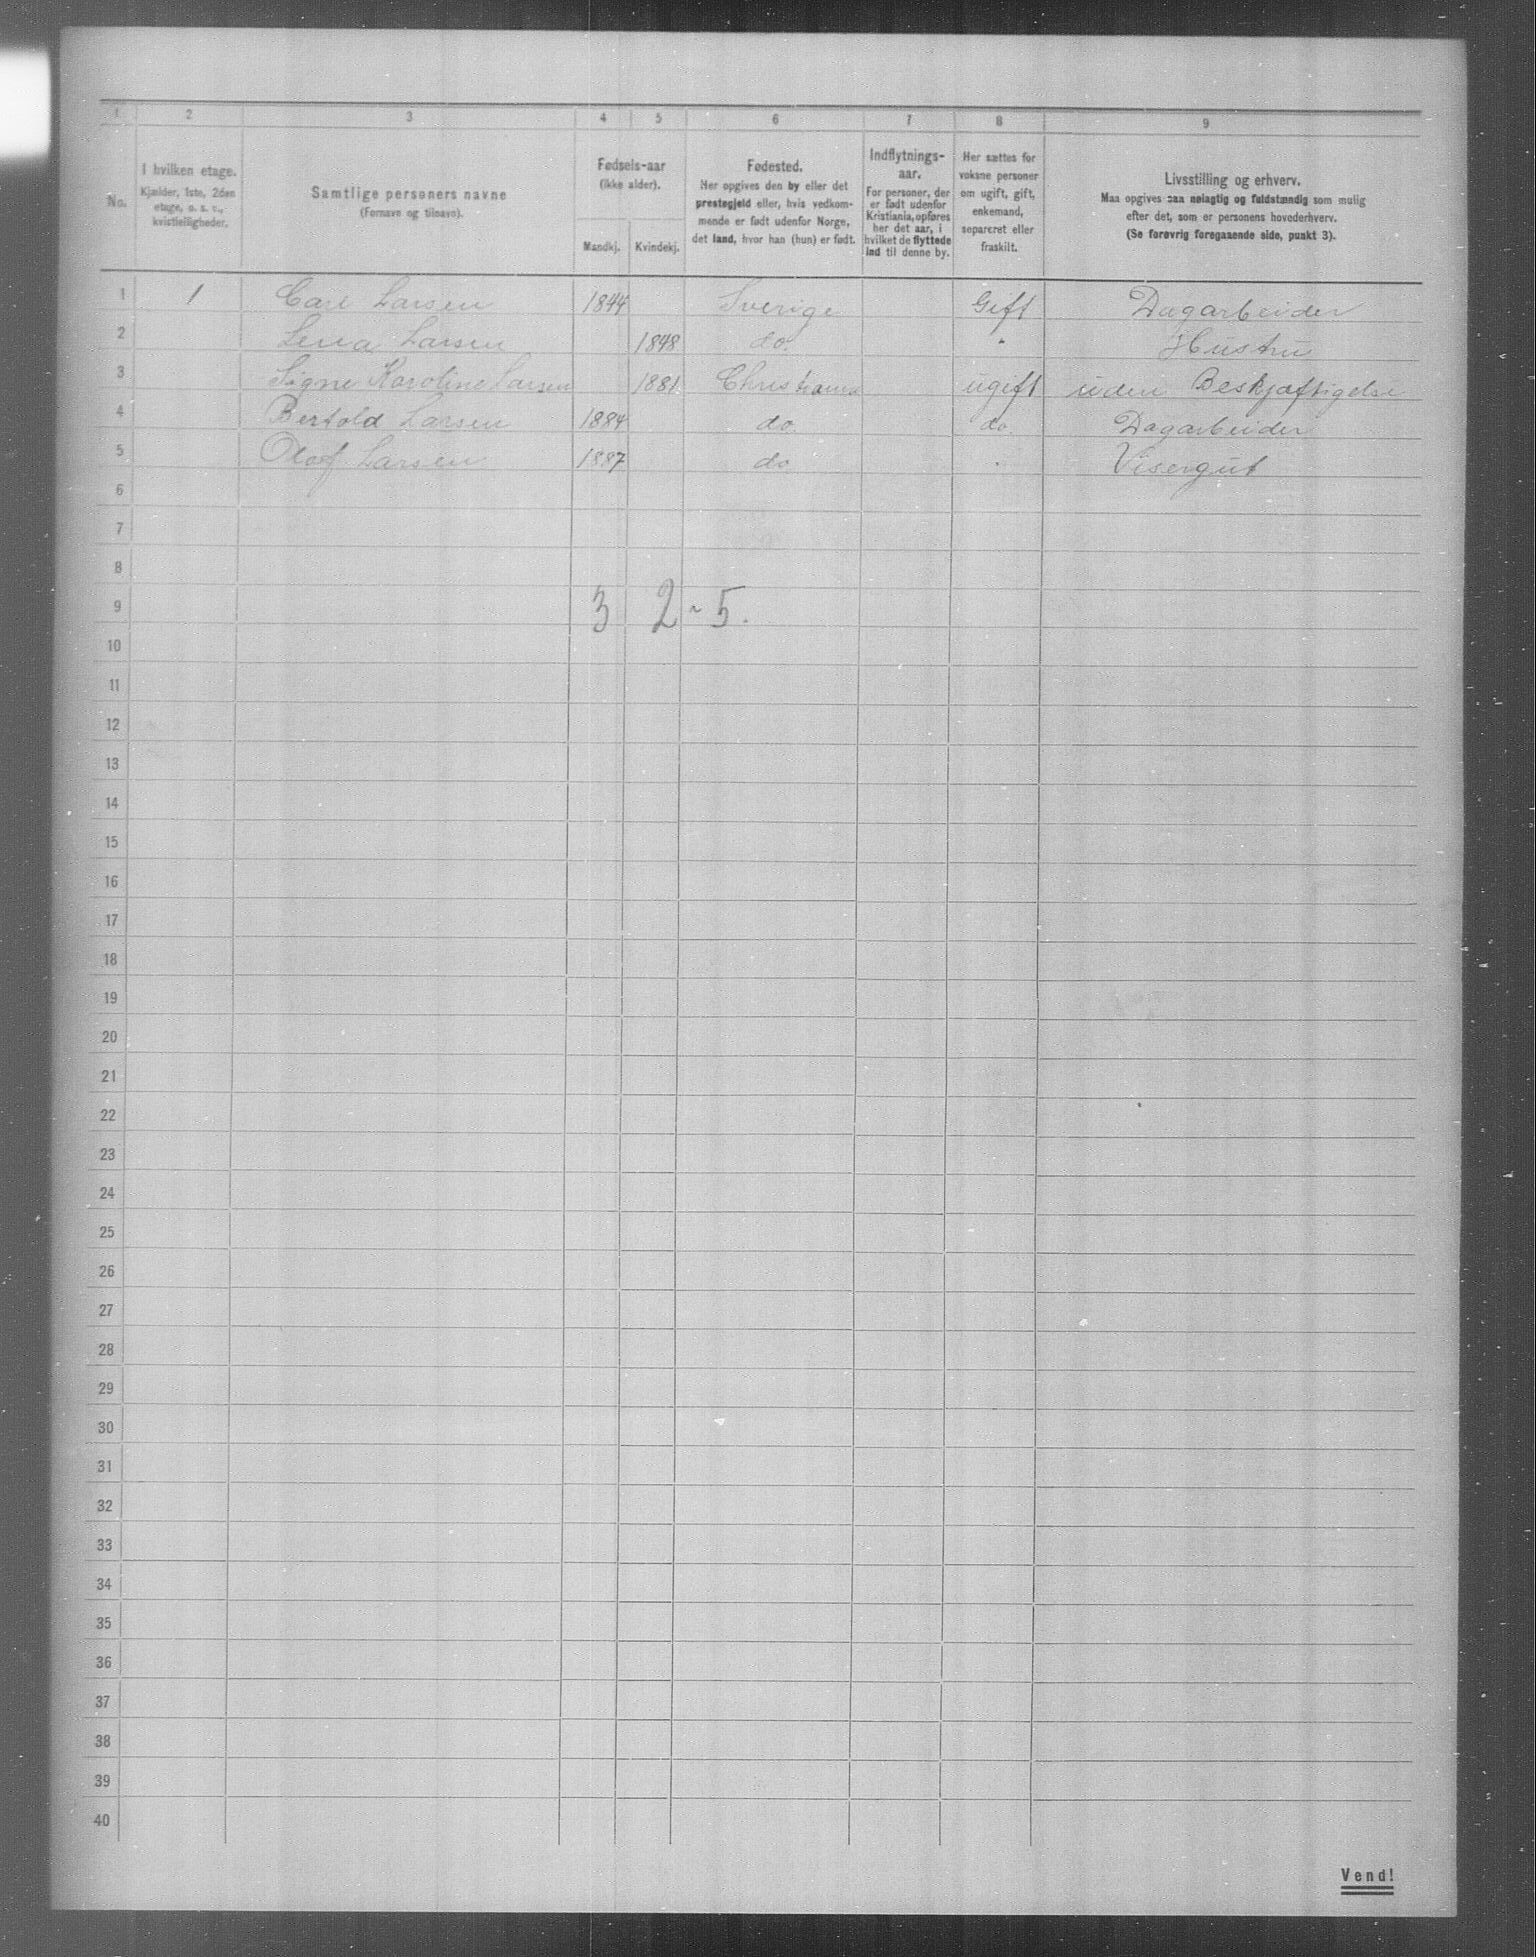 1 2 3 4 5 6 7 8 9
No.
I hvilken etage.
Kjælder, 1ste, 2den
etage, o. s. v.,
kvistleiligheder.
Samtlige personers navne
(Fornavn og tilnavn).
Fødsels-aar
(ikke alder).
Mandkj. Kvindekj.
Fødested.
Her opgives den by eller det
prestegjeld eller, hvis vedkom-
mende er født udenfor Norge,
det land, hvor han (hun) er født.
Indflytnings-
aar.
For personer, der
er født udenfor
Kristiania, opføres
her det aar, i
hvilket de flyttede
ind til denne by.
Her sættes for
voksne personer
om ugift, gift,
enkemand,
separeret eller
fraskilt.
Livsstilling og erhverv.
Maa opgives saa nøiagtig og fuldstændig som mulig
efter det, som er personens hovederhverv.
(Se forøvrig foregaaende side, punkt 3).
1 1 Carl Larsen 1844 Sverige Gift Dagarbeider
2 Lena Larsen 1848 do. " Hustru
3 Signe Karoline Larsen 1881 Christiania ugift uden Beskjæftigelse
4 Bertold Larsen 1884 do do. Dagarbeider
5 Olof Larsen 1887 do " Visergut
6
7
8
9 3 2 - 5.
10
11
12
13
14
15
16
17
18
19
20
21
22
23
24
25
26
27
28
29
30
31
32
33
34
35
36
37
38
39
40
Vend!